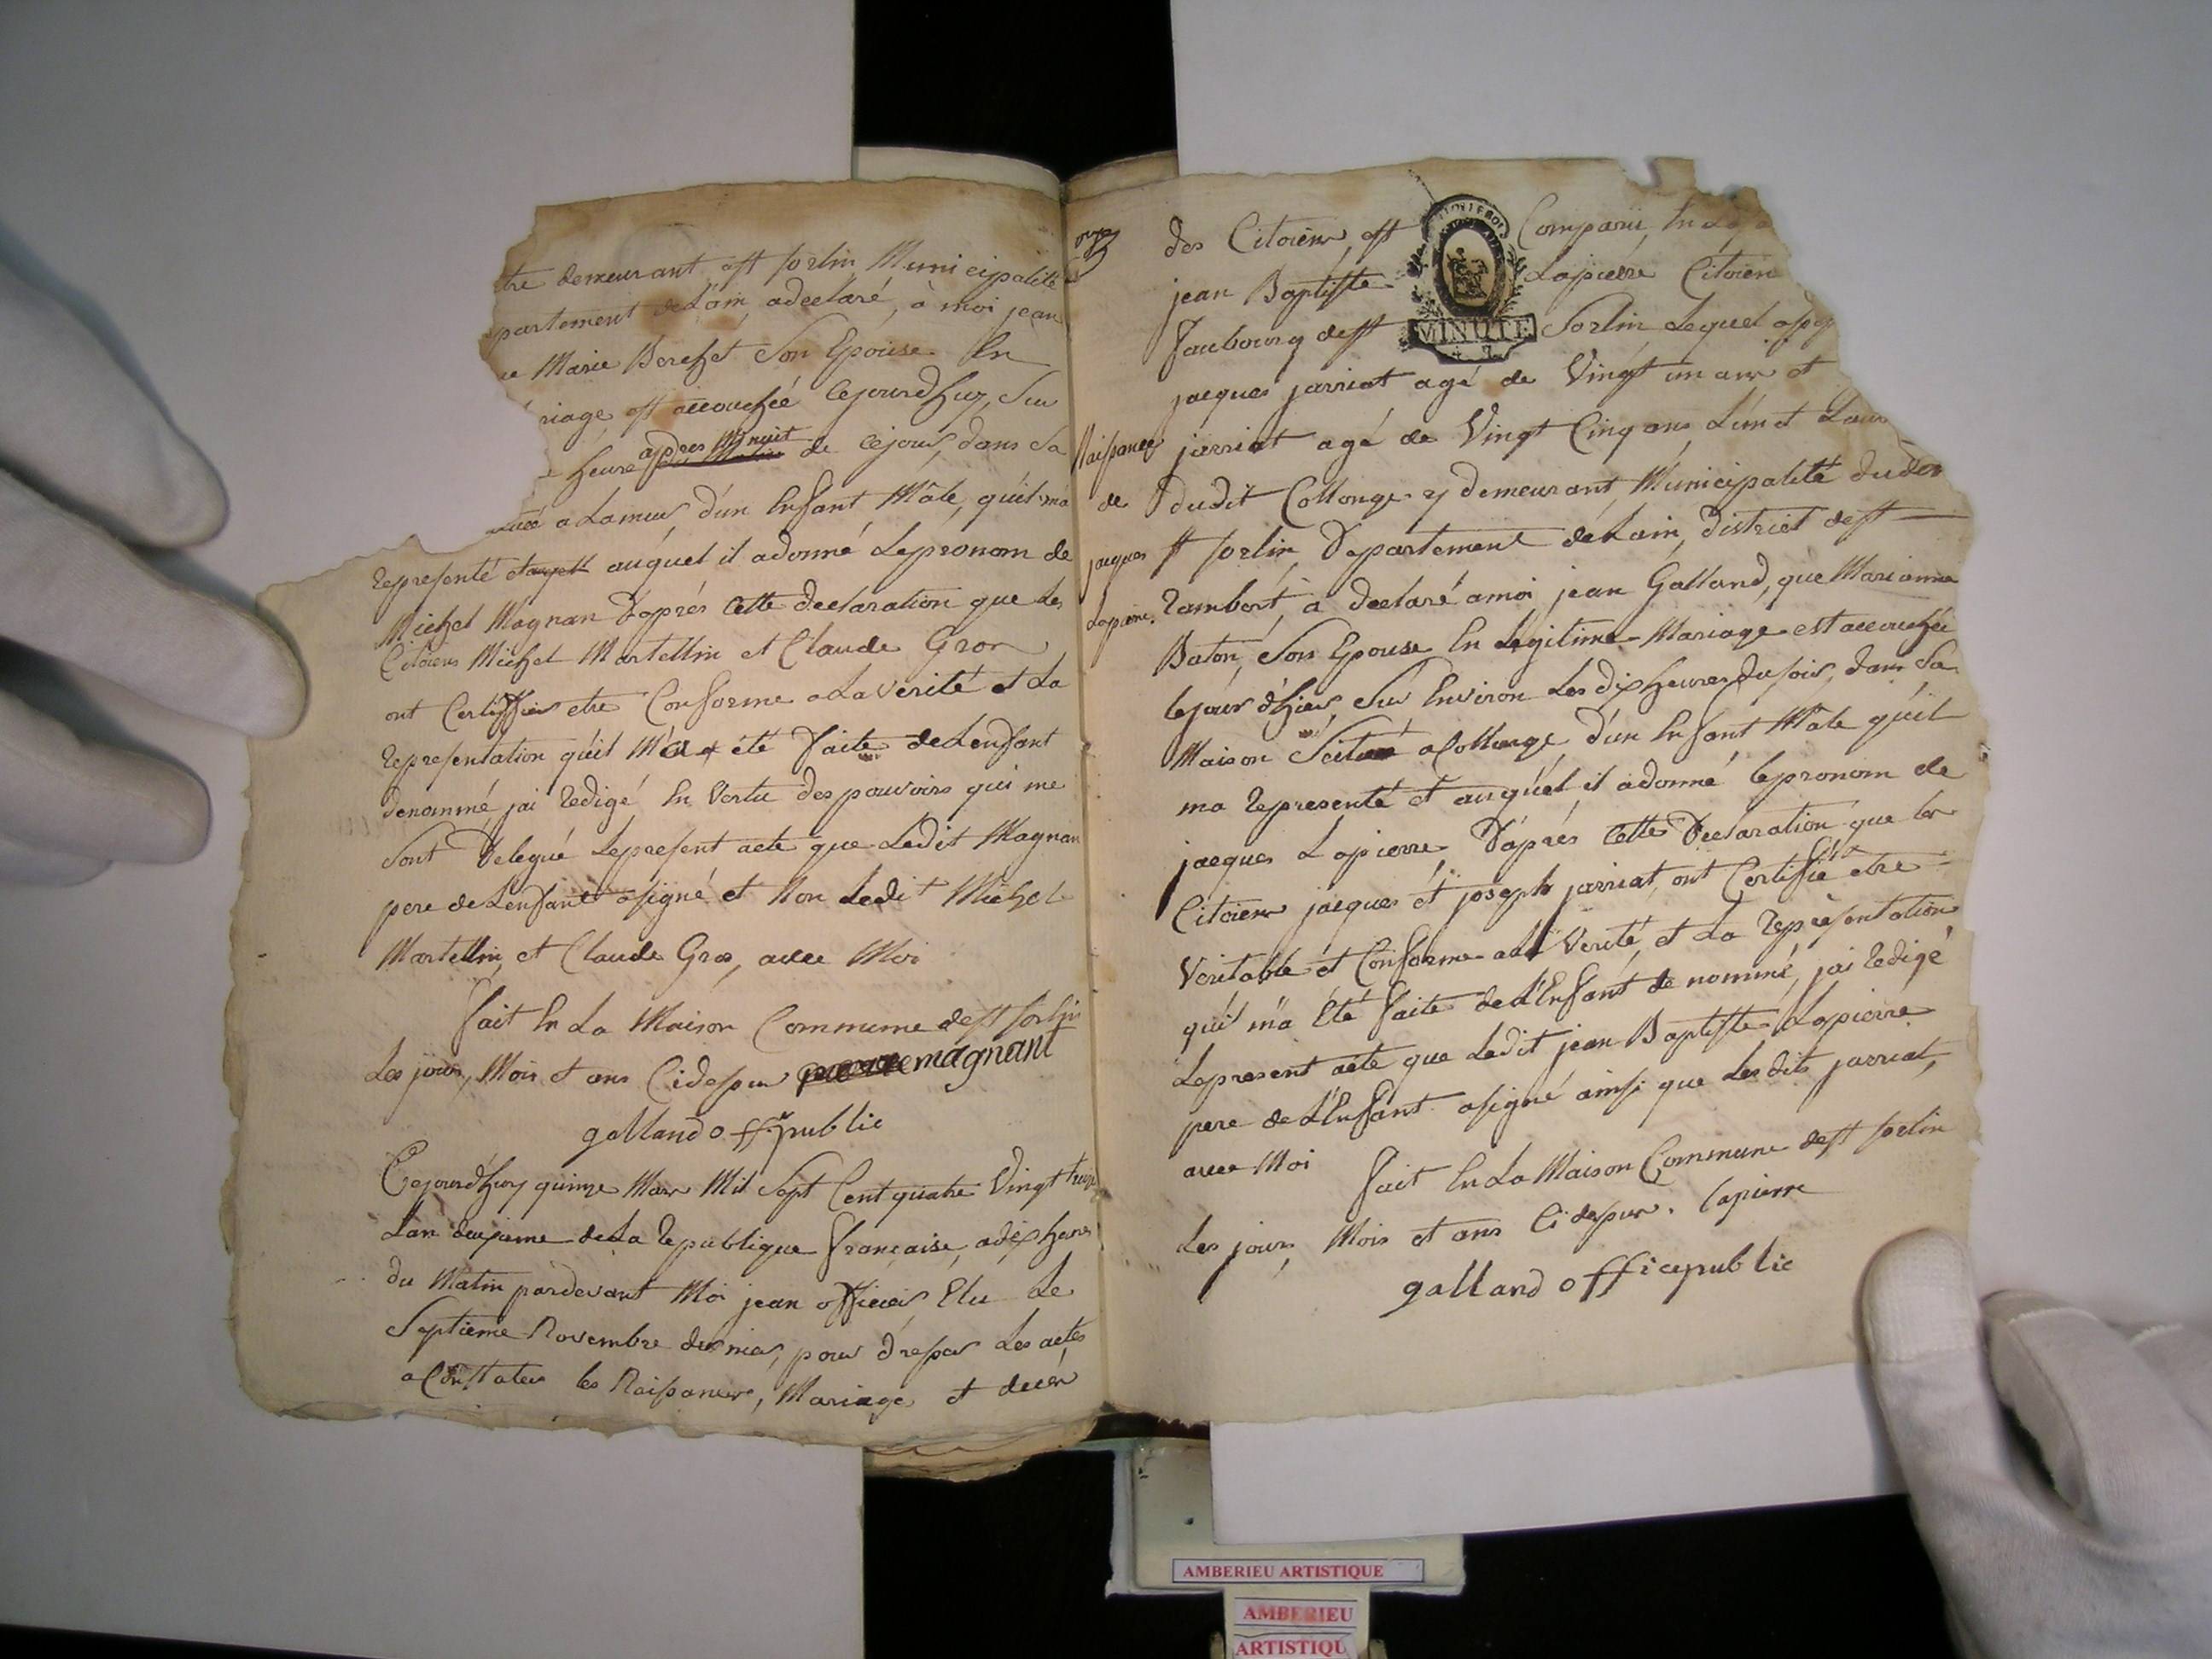 tre demeurant a st sorlin Municipalité
partement de Lain, adeclaré, à moi jean
ue Marie Berchet Son Epouse En
riage, est accouchée Cejourd'huy, Sur
heure apres Minuit de cejour, dans Sa
a Lameur, d'un Enfant Mâle, qu'il ma
representé et auquel il adonné Lepronom de
Michel Magnan D'aprés Cette declaration que Les
Citoiens Michel Martellin et Claude Gros
ont Certiffiés etre Conforme a La verité et La
representation qu'il M'a été faite de Lenfant
denommé, jai redigé En Vertu des pouvoirs qui me
Sont Delegué Lepresent acte que Ledit Magnan
pere de Lenfant asigné et Non Ledit Michel
Martellin, et Claude Gros, avec Moi
fait En La Maison Commune de st sorlin
Les jours, Mois et ans Cidesus magnant
galland off public
Cejourd'huy quinze Mars Mil Sept Cent quatre Vingt treize
Lan deuxieme de La republique française, adix heures
du Matin pardevant Moi jean officier Elu Le
Septieme Novembre dernier, pour dresser Les actes
a Constater les Naissances, Mariage et decés
des Citoiens, est Comparu, En
jean Baptiste Lapierre Citoien
faubourg de st Sorlin Lequel
MINUTE
jacques jarriat agé de Vingt un ans et
jarriat agé de Vingt Cinq ans L'un et Laur
dudit Collonge y demeurant, Municipalité dudit
st sorlin, Departement de Lain, District de st
rambert, a declaré amoi jean Galland, que Marianne
Baton, Son Epouse En Legitime Mariage est accouchée
lejour d'hier, Sur Environ Les dix heures du soir, dans Sa
Maison Scitué a Collonge, d'un Enfant Mâle qu'il
ma representé et auquel il adonné lepronom de
jacques Lapierre, D'aprés Cette Declaration que les
Citoiens jacques et joseph jarriat, ont Certifié etre
Veritable et Conforme a la Verité, et La representation
qu'il m'a Eté faite de L'Enfant de nommé, jai redigé
Lepresent acte que Ledit jean Baptiste Lapierre
pere de L'Enfant asigné ainsi que Lesdits jarriat,
avec Moi fait En La Maison Commune de st sorlin
Les jours, Mois et ans Cidesus. lapierre
galland officepublic
Naissance
de
jacques
Lapierre.
AMBERIEU ARTISTIQUE
AMBERIEU
ARTISTIQU